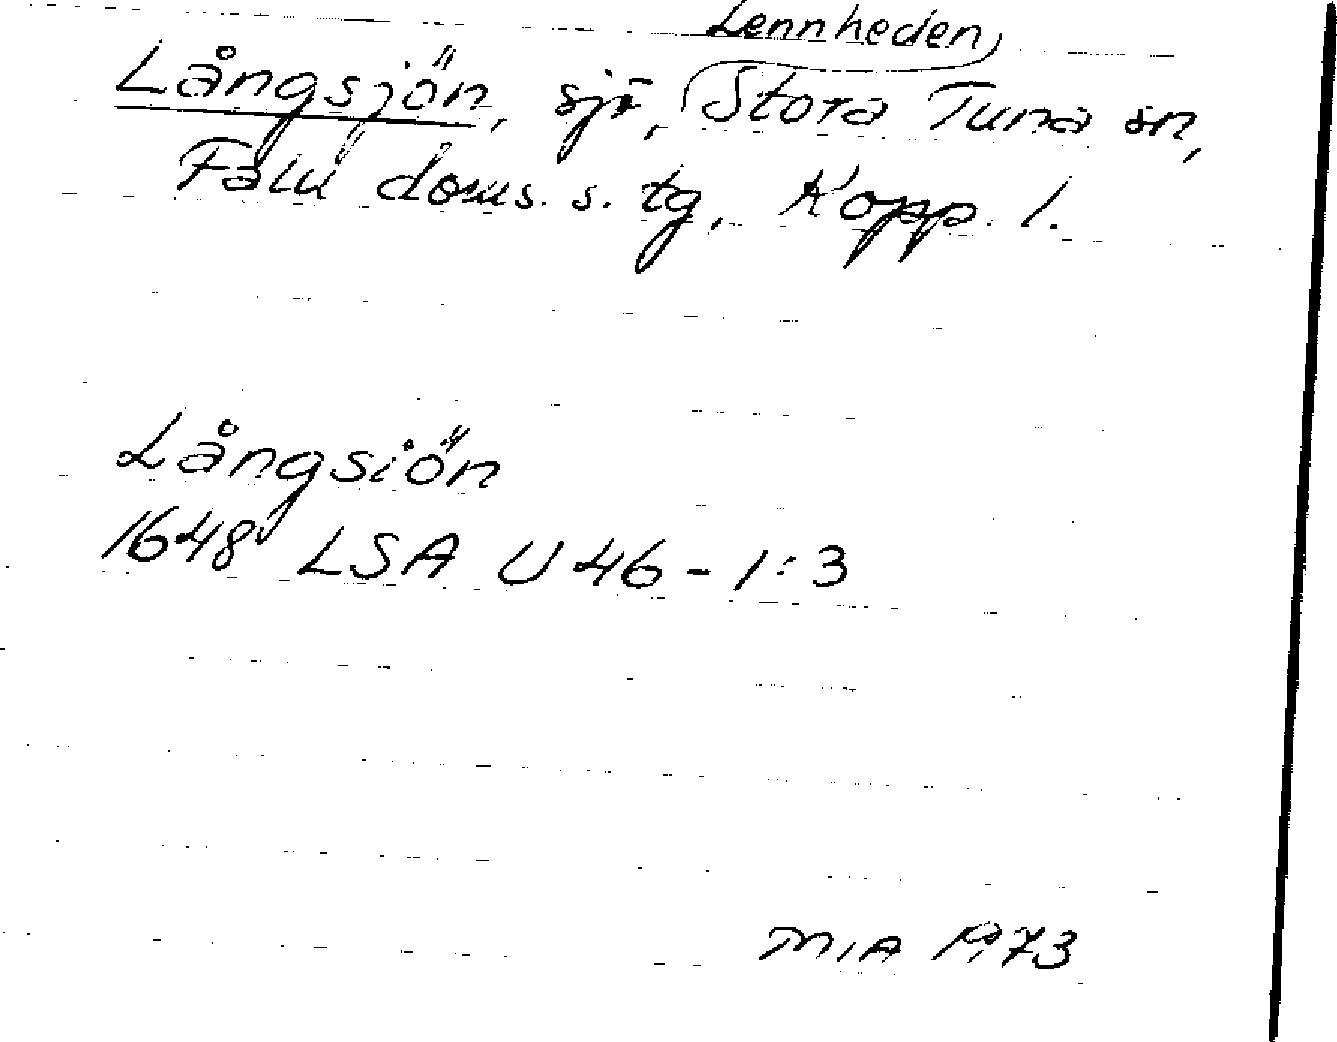 Lennheden,
Långsjön, sjö, Stora Tuna sn,
Falu doms. s. tg, Kopp. l.
Långsiön
1648 LSA U 46-1:3
MIA 1973